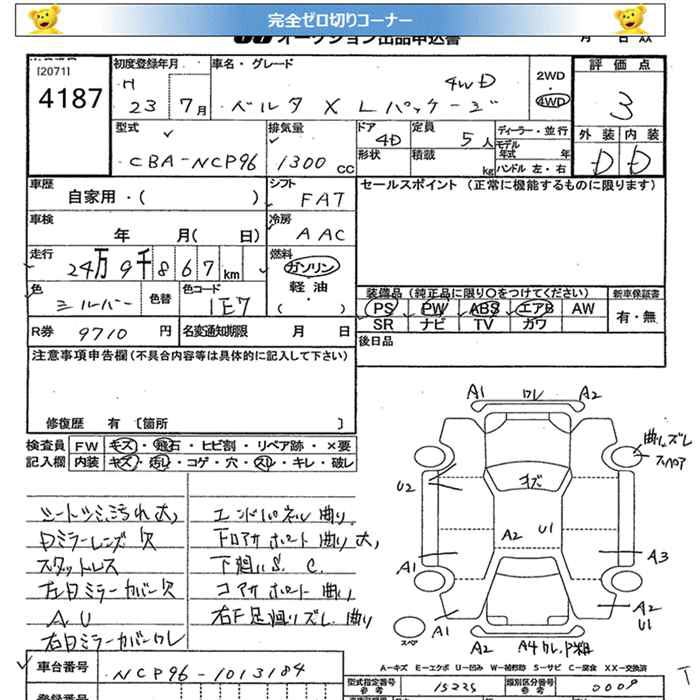 完全ゼロ切りコーナー
オークション出品申込書
[2071]
4187
初度登録年月
H 23 7月
車名・グレード
4WD
ベルタ X Lパッケージ
2WD
・
4WD
評価点
3
外装 内装
D D
型式
CBA-NCP96
排気量
1300 CC
ドア
4D
定員
5人
形状
積載
kg
ディーラー・並行
モデル年式 年
ハンドル 左・右
車歴
自家用・( )
シフト
FAT
セールスポイント (正常に機能するものに限ります)
車検
年 月( 日)
冷房
AAC
走行
24万9千867km
燃料
ガソリン
軽油
( )
色
シルバー
色替
色コード
1E7
装備品(純正品に限り○をつけてください)
PS PW ABS エアB AW
SR ナビ TV カワ
新車保証書
有・無
R券 9710 円
名変通知期限 月 日
後日品
注意事項申告欄(不具合内容等は具体的に記入して下さい)
修復歴 有 [箇所 ]
検査員記入欄
FW キズ・飛石・ヒビ割・リペア跡・×要
内装 キズ・汚レ・コゲ・穴・スレ・キレ・破レ
シートシミ、汚れ大
Dミラーレンズ欠
スタットレス
左右ミラーカバー欠
A.U
右ドミラーカバーワレ
エンドパネル曲り、
下回りS.C.
コアサポート曲り
右F足廻りズレ、曲り
A1 ワレ A2
曲り、ズレ
スペア
U2
キズ
A2 U1
A1
A3
A1
A2
U1
スペ
A2
A-キズ E-エクボ U-凹み W-補修跡 S-サビ C-腐食 XX-交換済
車台番号
NCP96-1013184
登録番号
型式指定番号
参考
15225
類別区分番号
参考
0009